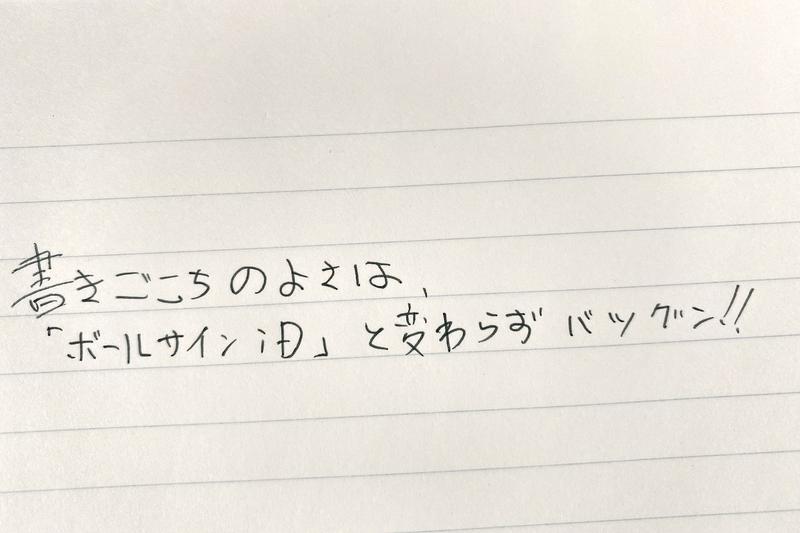 書きごこちのよさは、
「ボールサイン iD」と変わらずバツグン!!